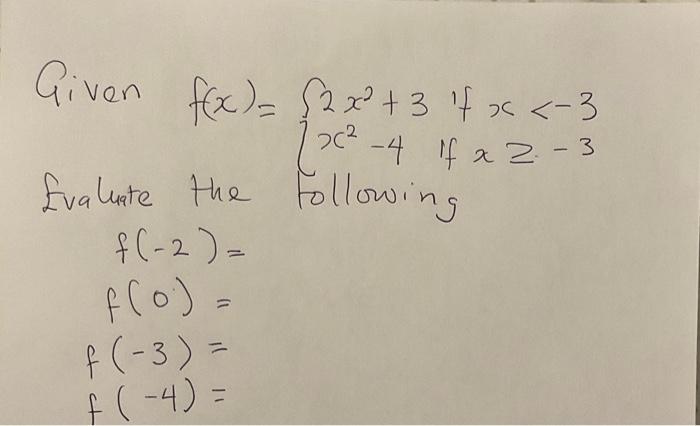 Given f(x) = { 2x² + 3 if x < -3
x² - 4 if x ≥ - 3
Evaluate the following
f(-2) =
f(0) =
f(-3) =
f(-4) =